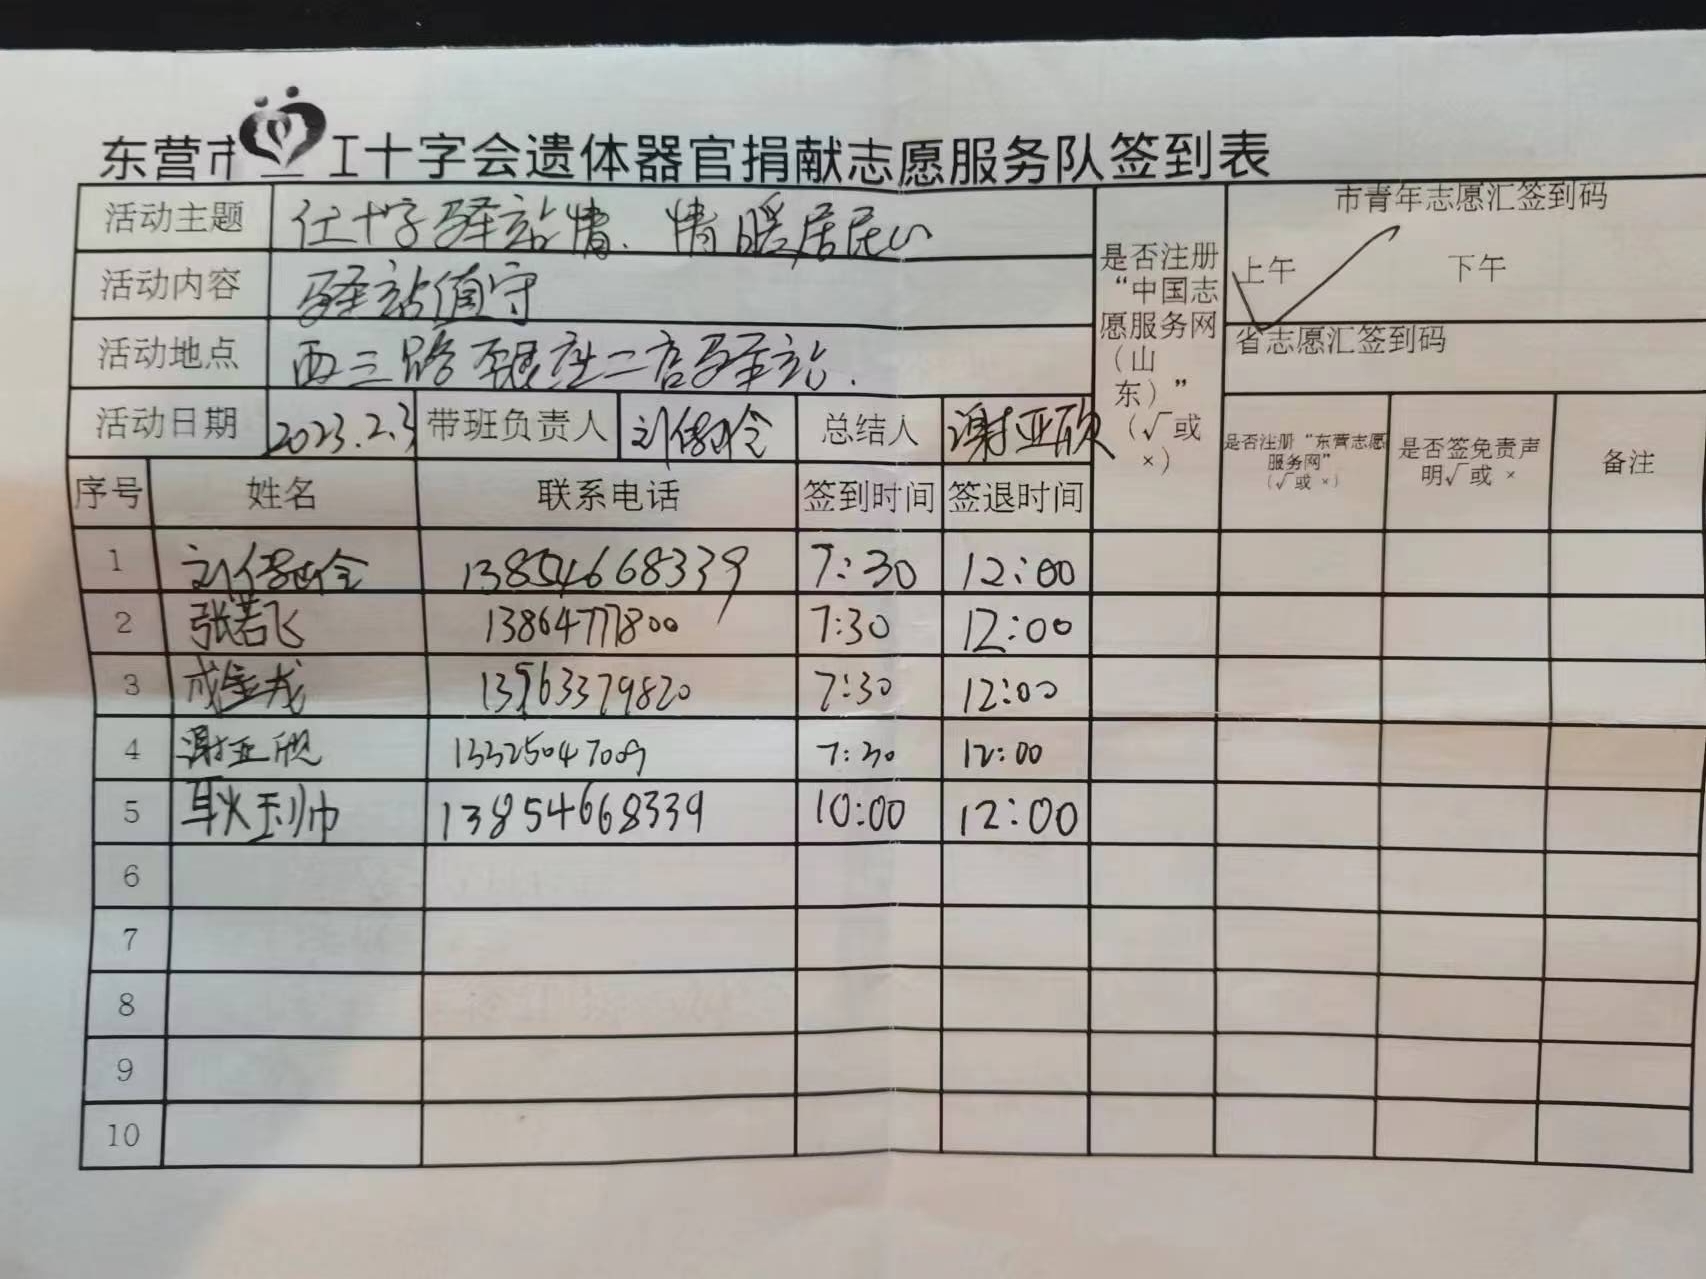 东营市红十字会遗体器官捐献志愿服务队签到表
活动主题 红十字驿站情、情暖居民心
活动内容 驿站值守
活动地点 西三路银座二店驿站.
活动日期 2023.2.3 带班负责人 总结人 谢亚欣
是否注册
“中国志
愿服务网
(山
东)”
(√或
×)
市青年志愿汇签到码
上午 下午
省志愿汇签到码
是否注册“东营志愿
服务网”
(√或 ×)
是否签免责声
明√或 ×
备注
序号 姓名 联系电话 签到时间 签退时间
1 13854668339 7:30 12:00
2 张若飞 13864777800 7:30 12:00
3 成金龙 13963379820 7:30 12:00
4 谢亚欣 13325047009 7:30 12:00
5 耿玉帅 13854668339 10:00 12:00
6
7
8
9
10